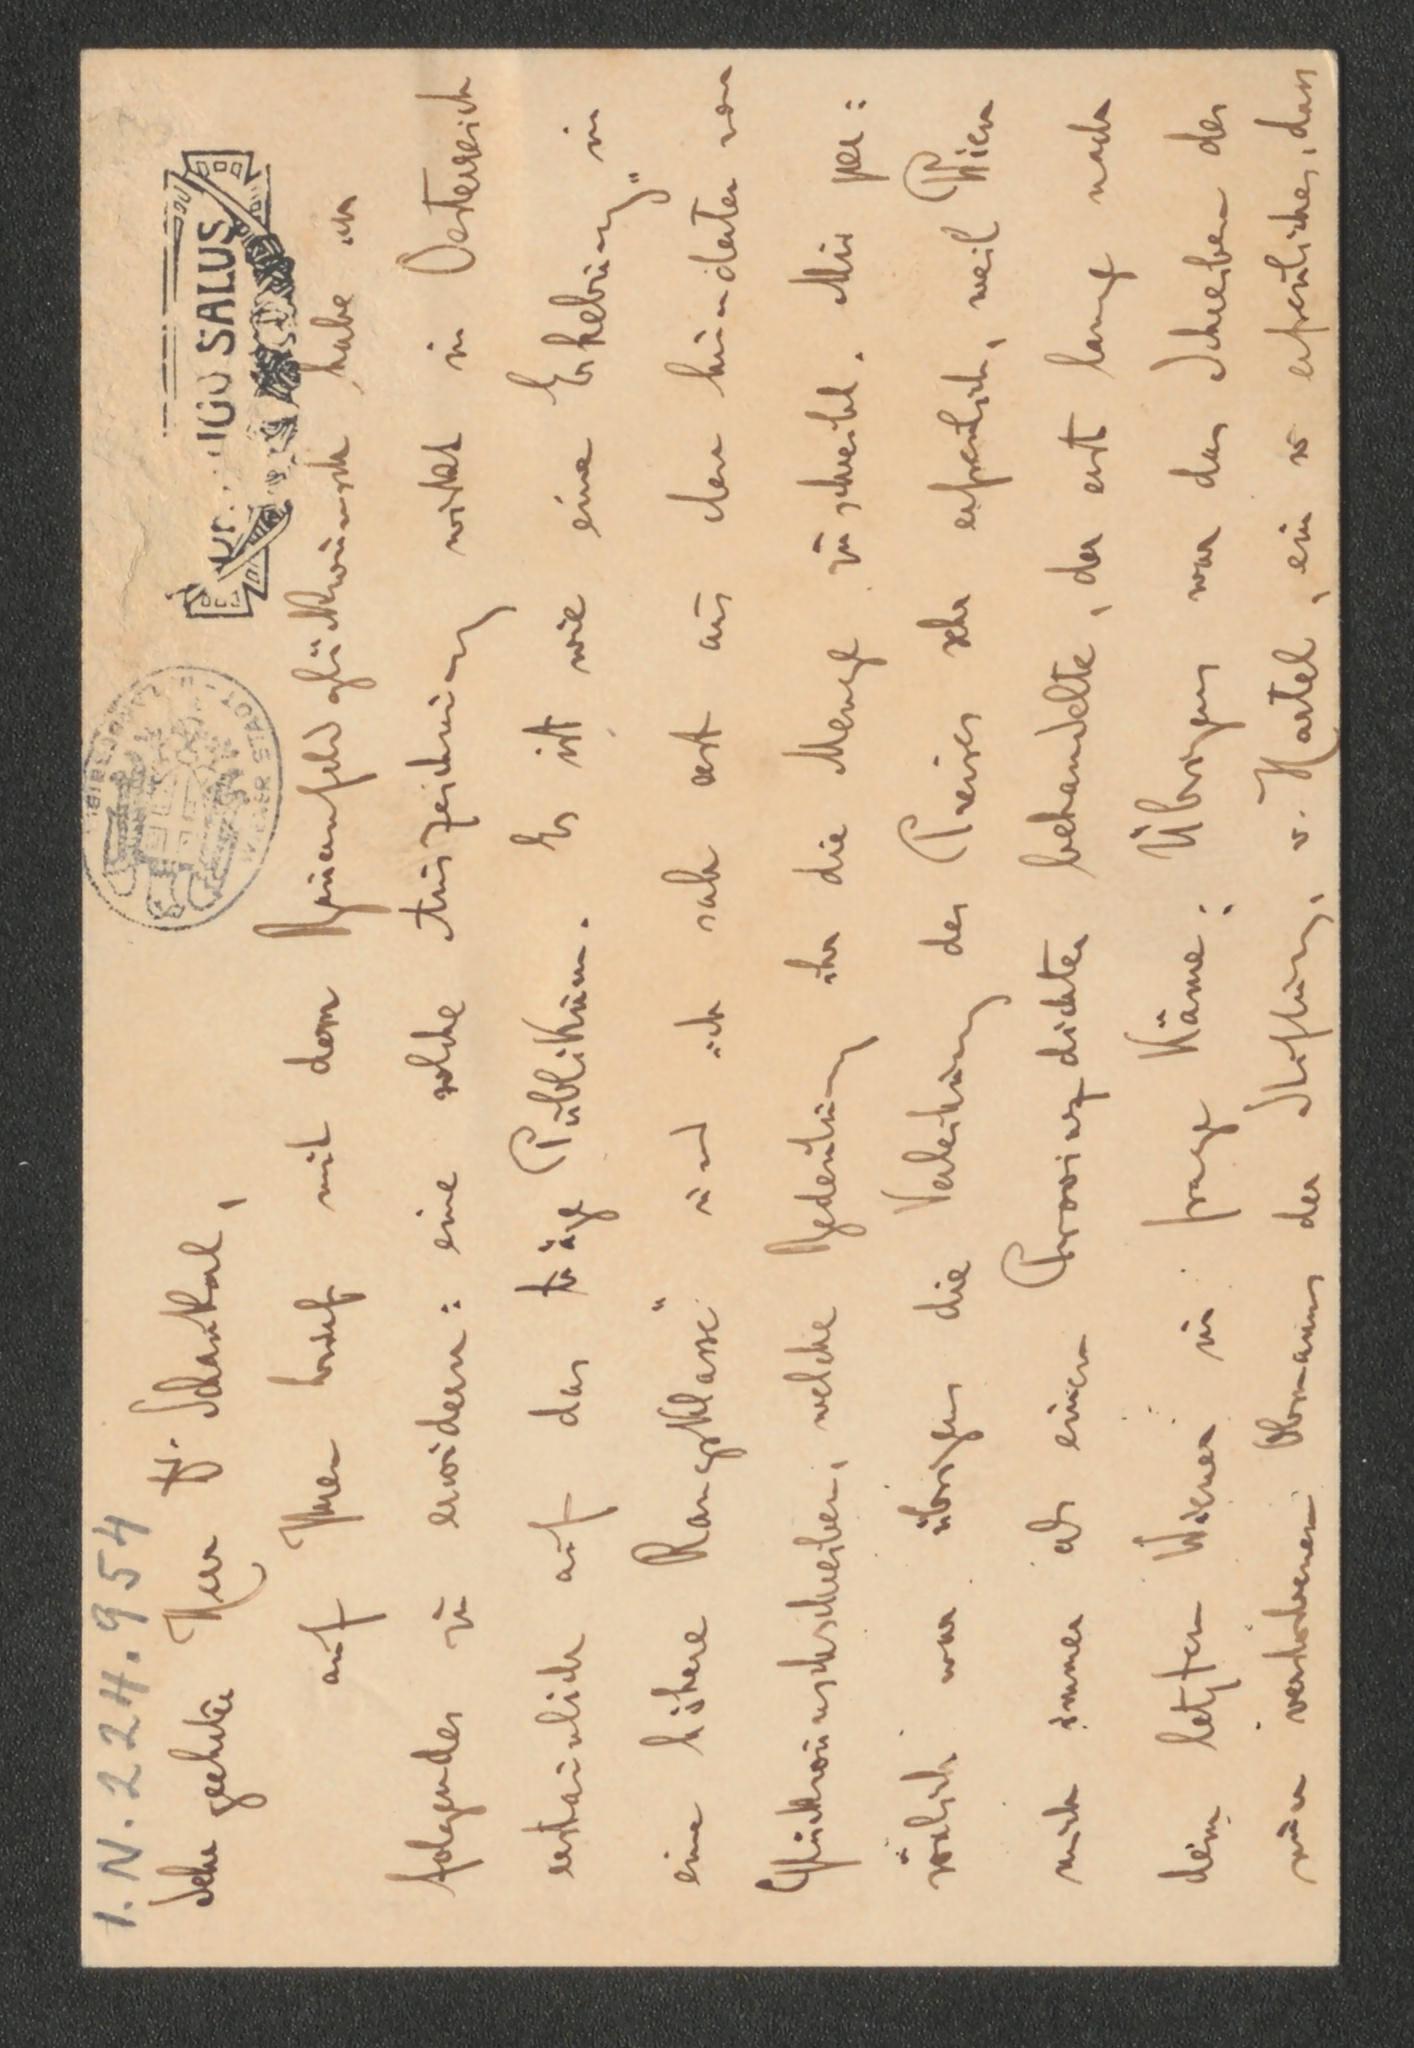 I.N. 224.954
DR. HUGO SALUS
Sehr geehrter Herr Dr. Schaukal,
auf Ihren Brief mit dem Bauernfeldglückwunsch, habe ich
folgendes zu erwidern: eine solche Auszeichnung wirkt in Oesterreich
erstaunlich auf das träge Publikum. Es ist wie eine „Erhebung" in
eine höhere Rangsklasse" und ich sah erst aus den hunderten von
Glückwunschschreiben, welche Bedeutung ihr die Menge zuschreibt. Mir per:
sönlich war übrigens die Verleihung des Preises sehr erfreulich, weil Wien
mich immer als einen Provinzdichter behandelte, der erst lange nach
dem letzten Wiener in Frage käme. Übrigens war das Schreiben des
nun verstorbenen Obmanns der Stiftung, v. Hartel, ein so erfreuliches, dass